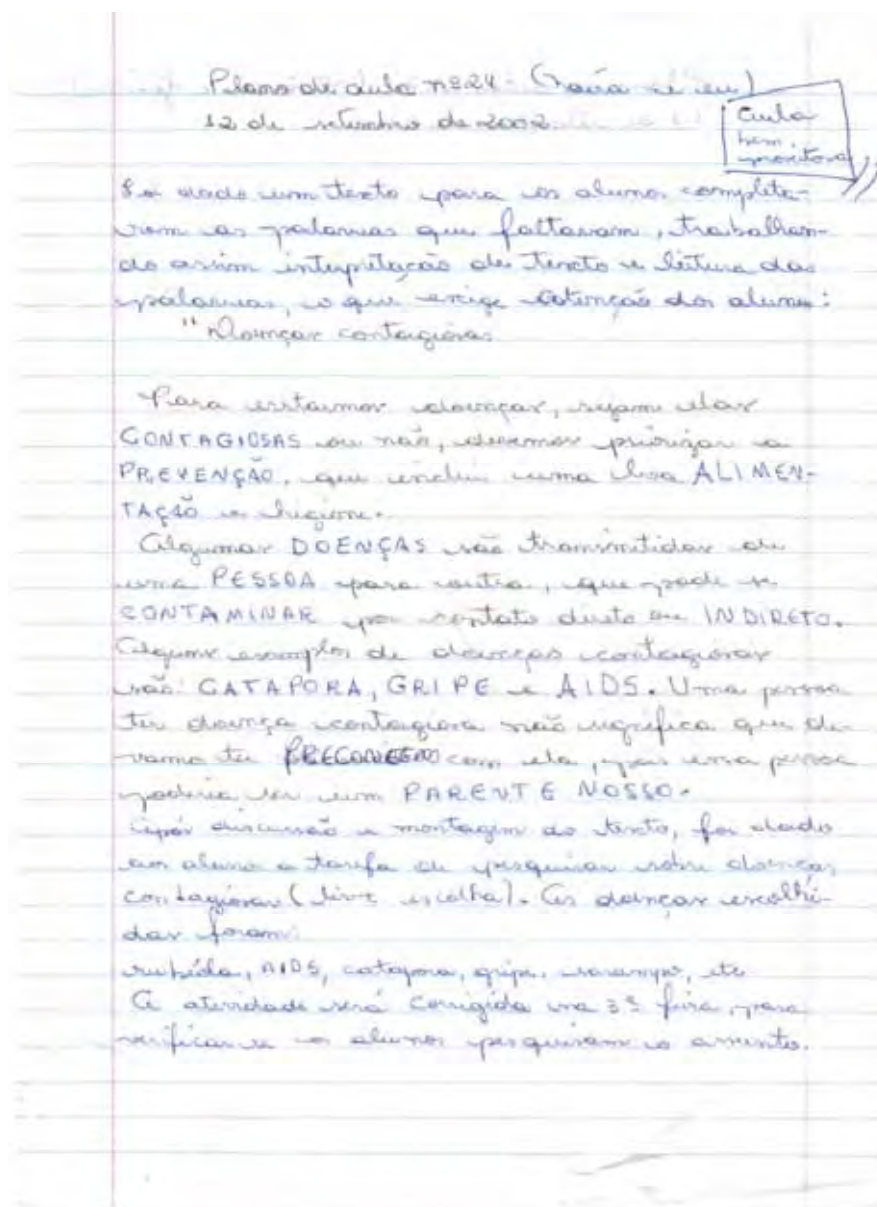 Plano de aula nº 24 - (Naíra e eu)
12 de setembro de 2002.
Aula
bem
proveitosa
Foi dado um texto para os alunos completa-
rem as palavras que faltavam, trabalhan-
do assim interpretação de texto e leitura das
palavras, o que exige atenção dos alunos:
"Doenças contagiosas
Para evitarmos doenças, sejam elas
CONTAGIOSAS ou não, devemos priorizar a
PREVENÇÃO, que inclui uma boa ALIMEN-
TAÇÃO e higiene.
Algumas DOENÇAS são transmitidas de
uma PESSOA para outra, que pode se
CONTAMINAR por contato direto ou INDIRETO.
Alguns exemplos de doenças contagiosas
são: CATAPORA, GRIPE e AIDS. Uma pessoa
ter doença contagiosa não significa que de-
vamos ter PRECONCEITO com ela, pois essa pessoa
poderia ser um PARENTE NOSSO.
Após discussão e montagem do texto, foi dado
aos alunos a tarefa de pesquisar sobre doenças
contagiosas (livre escolha). As doenças escolhi-
das foram:
rubéola, AIDS, catapora, gripe, sarampo, etc
A atividade será corrigida na 3ª feira, para
verificar se os alunos pesquisam o assunto.